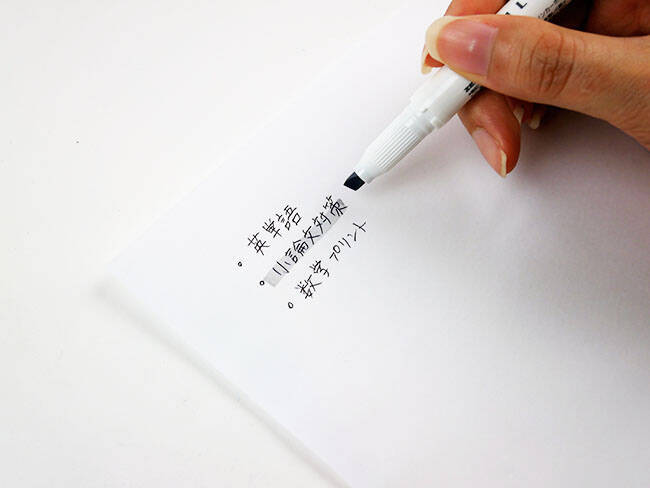 。英単語
。小論文対策
。数学プリント